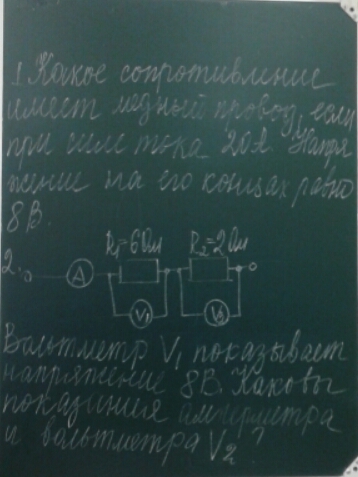 1. Какое сопротивление
имеет медный провод, если
при силе тока 20А. Напря
жение на его концах равно
8В.
R₁=6Ом R₂=2Ом
2.
A
V₁ V₂
Вольтметр V₁ показывает
напряжение 8В. Каковы
показания амперметра
и вольтметра V₂?